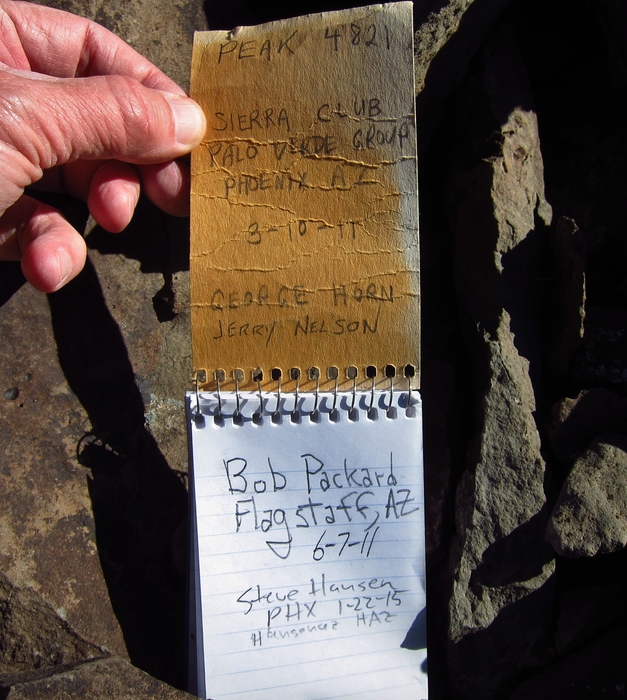 PEAK 4821
SIERRA CLUB
PALO VERDE GROUP
PHOENIX AZ
3-10-11
GEORGE HORN
JERRY NELSON
Bob Packard
Flagstaff, AZ
6-7-11
Steve Hansen
PHX 1-22-15
Hansenaz HAZ